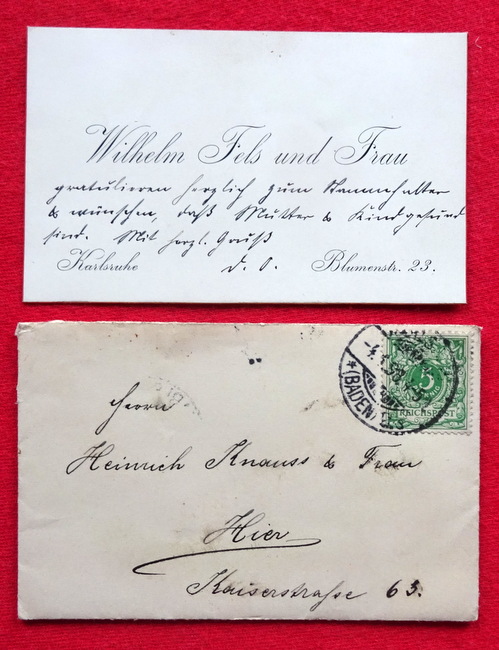 Wilhelm Fels und Frau
gratulieren herzlich zum Stammhalter
& wünschen, daß Mutter & Kind gesund
sind. Mit herzl. Gruß
Karlsruhe d. O. Blumenstr. 23.
(BADEN)
5
REICHSPOST
Herrn
Heinrich Knauss & Frau
Hier
Kaiserstrasse 63.